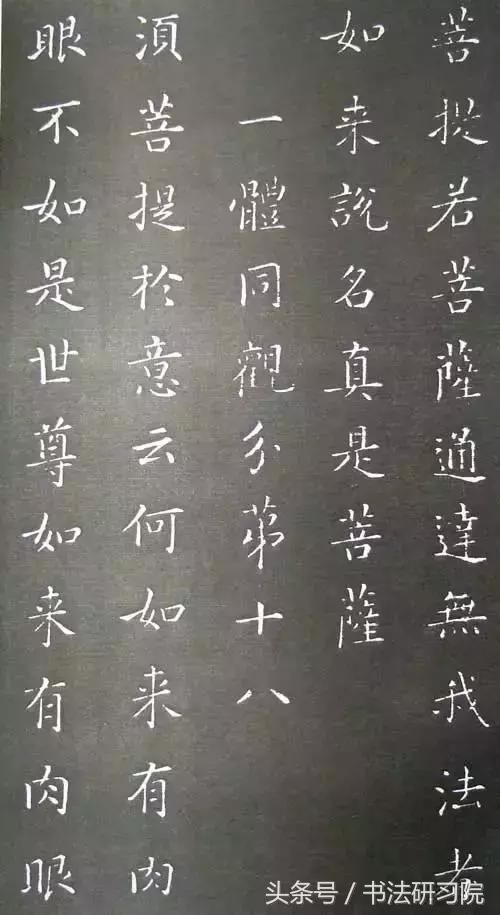 菩提若菩薩通達無我法者
如来說名真是菩薩
一體同觀分第十八
須菩提於意云何如来有肉
眼不如是世尊如来有肉眼
头条号／书法研习院